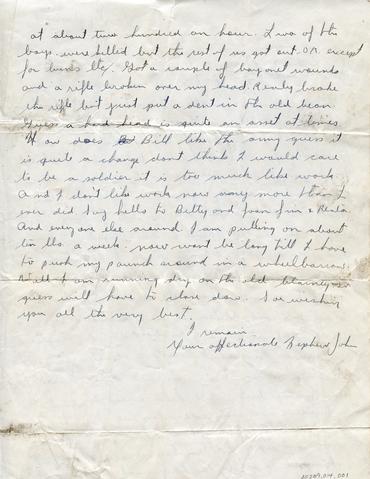 at about two hundred an hour. Two of the
boys were killed but the rest of us got out O.K. except
for burns etc. Got a couple of bayonet wounds
and a rifle broken over my head. Really broke
the rifle but just put a dent in the old bean.
Guess a hard head is quite an asset at times.
How does Bill like the army guess it
is quite a change dont think I would care
to be a soldier it is too much like work.
And I don't like work now any more than I
ever did. Say hello to Betty and Joan Jim &
And everyone else around. I am putting on about
ten lbs a week. now wont be long till I have
to push my paunch around in a wheelbarrow.
Well I am running dry on the old blarney so
guess will have to close down. So wishing
you all the very best.
I remain
Your affectionate Nephew John